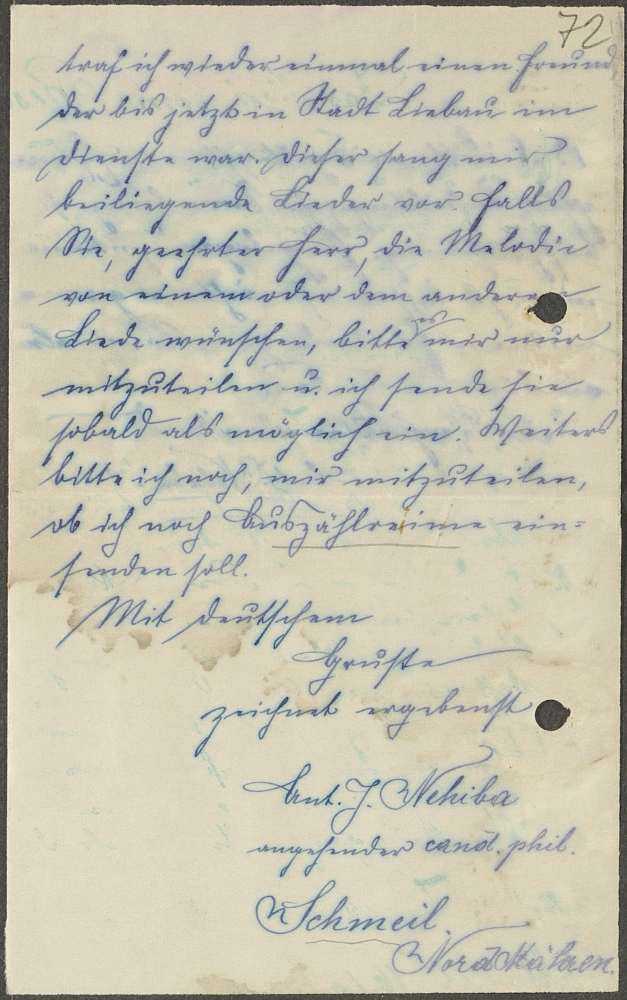 72
traf ich wieder einmal einen Freund
der bis jetzt in Stadt Liebau im
Dienste war. Dieser sang mir
beiliegende Lieder vor. Falls
Sie, geehrter Herr, die Melodie
von einem oder dem anderen
Liede wünschen, bitte es mir nur
mitzuteilen u. ich sende sie
sobald als möglich ein. Weiters
bitte ich noch, mir mitzuteilen,
ob ich noch Auszählreime ein=
senden soll.
Mit deutschem
Gruße
zeichnet ergebenst
Ant. J. Nehiba
angehender cand. phil.
Schmeil.
Nordmähren.